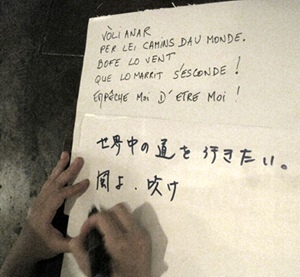 VÒLI ANAR
PER LEI CAMINS DAU MONDE.
BOFE LO VENT
QUE LO MARRIT S'ESCONDE !
EMPÊCHE MOI D'ETRE MOI !
世界中の道を行きたい。
風よ、吹け